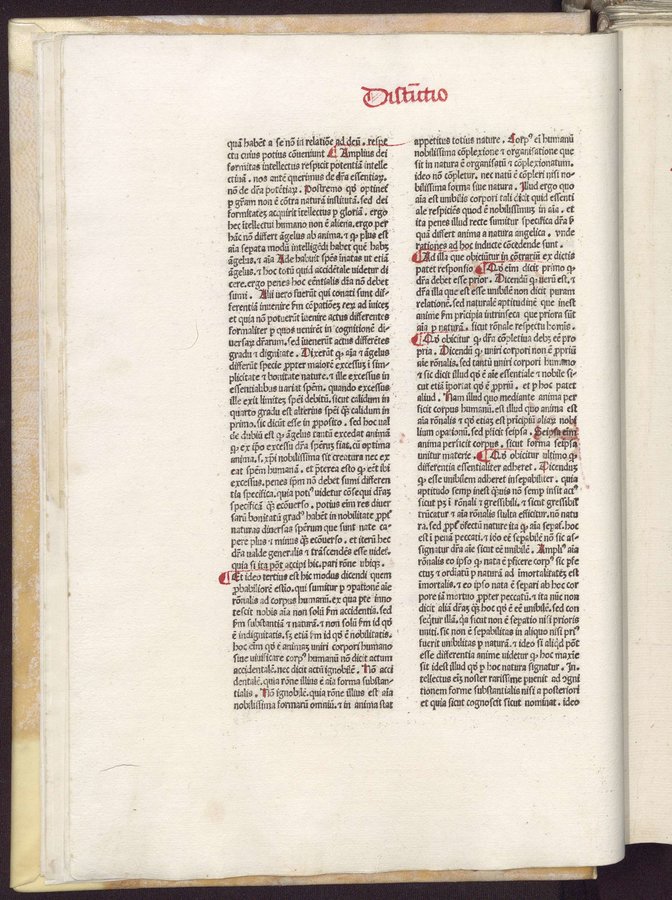 Distinctio
quã habẽt a se nõ in relatiõe ad deũ . respe
ctu cuius potius cõueniunt Amplius dei
formitas intellectus respicit potentiã intelle
ctiuã . nos antẽ querimus de dr̃a essentiaꝝ.
nõ de dr̃a potẽtiaꝝ. Postremo qꝫ optinet᷑
p gr̃am non ẽ cõtra naturã institutã. sed dei
formitatẽ acquirit ĩtellectus p gloriã . ergo
hec ĩtellectui humano non ẽ aliena. ergo per
hãc nõ differt ãgelus ab anima. ⁊ qꝫ plus est
aĩa sepata modũ intelligẽdi habet quẽ habꝫ
ãgelus. ⁊ aĩa Ade habuit spẽs inatas ut etiã
ãgelus. ⁊ hoc totũ quid accidẽtale uidetur di
cere. ergo penes hoc cẽntialis dr̃a nõ debet
sumi . Alii uero fuerũt qui conati sunt dif-
ferẽtiã inuenire ẽm cõpatiõeꝫ rerũ ad iuiceꝫ
et quia nõ potuerũt iuenire actus differentes
formaliter p quos uenirẽt in cognitiõe di-
uersaꝝ dr̃arum. sed iuenerũt actus differẽtes
gradu ⁊ dignitate . Dixerũt qꝫ aĩa ⁊ ãgelus
differũt specie ꝓpter maiorẽ excessuꝫ i sim-
plicitate ⁊ bonitate nature. ⁊ ille excessus in
essentialibus uariat spẽm. quando excessus
ille exit limites spẽi debitũ. sicut calidum in
quarto gradu est alterius spẽi qꝫ calidum in
primo. sic dicũt esse in ꝓposito . sed hoc ual
de dubiũ est qꝫ ãgelus tantũ excedat animã
qꝫ ex ipõ excessu dr̃a spẽrũs fiat. cũ optima
anima. s. xpĩ nobilissima sit creatura nec ex
eat spẽm humanã . et p̃terea esto qꝫ eẽt ibi
excessus. penes ipm nõ debet sumi differen
tia specifica. quia poti᷒ uidetur cõsequi dr̃aꝫ
specificã qꝫ ecõuerso . potius eim res diuer
sarũ bonitatũ grad᷒ habẽt in nobilitate ꝓpt᷑
naturas diuersas sperum que sunt nate ca-
pere plus ⁊ minus qꝫ ecõuerso . et iterũ hec
dr̃a ualde generalis ⁊ trãscedẽs esse uidet᷑.
quia si ita põt accipi hic. pari rõne ubiqꝫ.
Et ideo tertius est hic modus dicendi quem
ꝓbabiliorẽ estio. qui sumitur p ꝯpatiõe aĩe
rõnalis ad corpus humanũ. ex qua pte inno
tescit nobis aĩa non solũ ẽm accidentia. sed
ẽm substantiã ⁊ naturã. ⁊ non solũ ẽm id qꝫ ẽ
indignitatis. sꝫ etiã ẽm id qꝫ ẽ nobilitatis.
hoc eim qꝫ ẽ animaꝫ uniri corpori humano
siue uiuificare corp᷒ humanũ nõ dicit actum
accidentalẽ. nec dicit actũ ignobilẽ . Nõ acci
dentalẽ. quia rõne illius ẽ aĩa forma substan-
tialis . Nõ ignobilẽ. quia rõne illius est aĩa
nobilissima formarũ omniũ. ⁊ in anima stat
appetitus totius nature . Corp᷒ ei humanũ
nobilissima cõplexione ⁊ organisatione que
sit in natura ẽ organisatũ ⁊ cõplexionatum.
ideo nõ cõpletur. nec natũ ẽ cõpleri nisi no-
bilissima forma siue natura . Illud ergo quo
aĩa est unibilis corpori tali dicit quid essenti
ale respiciẽs quod ẽ nobilissimuꝫ in aĩa . et
ita penes illud recte sumitur specifica dr̃a p
quã differt anima a natura angelica . vnde
rationes ad hoc inducte cõcedende sunt .
Ad illa que obiciũtur in cõtrariũ ex dictis
patet responsio Qꝫ eim dicit primo qꝫ
dr̃a debet esse prior . Dicendũ qꝫ uerũ est. ⁊
dr̃a illa que est esse unibilẽ non dicit puram
relationẽ. sed naturalẽ aptitudinẽ que inest
anime ẽm pricipia intrinseca que priora sũt
aĩa p naturã . sicut rõnale respectu homis.
Qꝫ obicitur qꝫ dr̃a cõpletiua debꝫ eẽ pro
pria . Dicendũ qꝫ uniri corpori non ẽ ꝓpriũ
aĩe rõnalis. sed tantũ uniri corpori humano
⁊ sic dicit illud qꝫ ẽ aĩe essentiale ⁊ nobile si-
cut etiã iportat qꝫ ẽ ꝓpriũ . et p hoc patet
aliud . Nam illud quo mediante anima per
ficit corpus humanũ. est illud quo anima est
aĩa rõnalis ⁊ qꝫ etiaꝫ est pricipiũ aliaꝝ nobi
lium opationũ. sed plicit seipsa . Seipsa eim
anima perficit corpus . sicut forma seipsa
unitur materie . Qꝫ obicitur ultimo qꝫ
differentia essentialiter adheret . Dicenduꝫ
qꝫ esse unibilem adheret insepabiliter . quia
aptitudo semp inest qꝫuis nõ semp insit act᷒
sicut pꝫ i rõnali ⁊ gressibili . et sicut gressibil᷑
trũcatur ⁊ aĩa rõnalis stulta efficitur. nõ natu
ra. sed ꝓpt᷑ defectũ nature ita qꝫ aĩa sepaẽ. hoc
est i penã peccati. ⁊ ido eẽ sepabilẽ nõ sic as-
signatur dr̃a aĩe sicut eẽ unibilẽ . Ampli᷒ aĩa
rõnalis eo ipso qꝫ nata ẽ pficere corp᷒ sic pfe
ctuꝫ ⁊ ordiatũ p naturã ad imortalitateꝫ est
imortalis. ⁊ eo ipso nata ẽ separi ab hoc cor
pore iã mortuo ꝓpter peccatũ. ⁊ ita nũc non
dicit aliã dr̃aꝫ qꝫ hoc qꝫ ẽ eẽ unibilẽ. sed con
seqũtur illã. qa sicut non ẽ sepatio nisi prioris
uniti. sic non ẽ sepabilitas in aliquo nisi pri᷒
fuerit unibilitas p naturã . ⁊ ideo si aliqd põt
esse differentia anime uidetur qꝫ hoc maxie
sit idest illud qꝫ p hoc natura signatur . In-
tellectus eiꝫ noster rarissime puenit ad ꝯgni
tionem forme substantialis nisi a posteriori
et quia sicut cognoscit sicut nominat . ideo